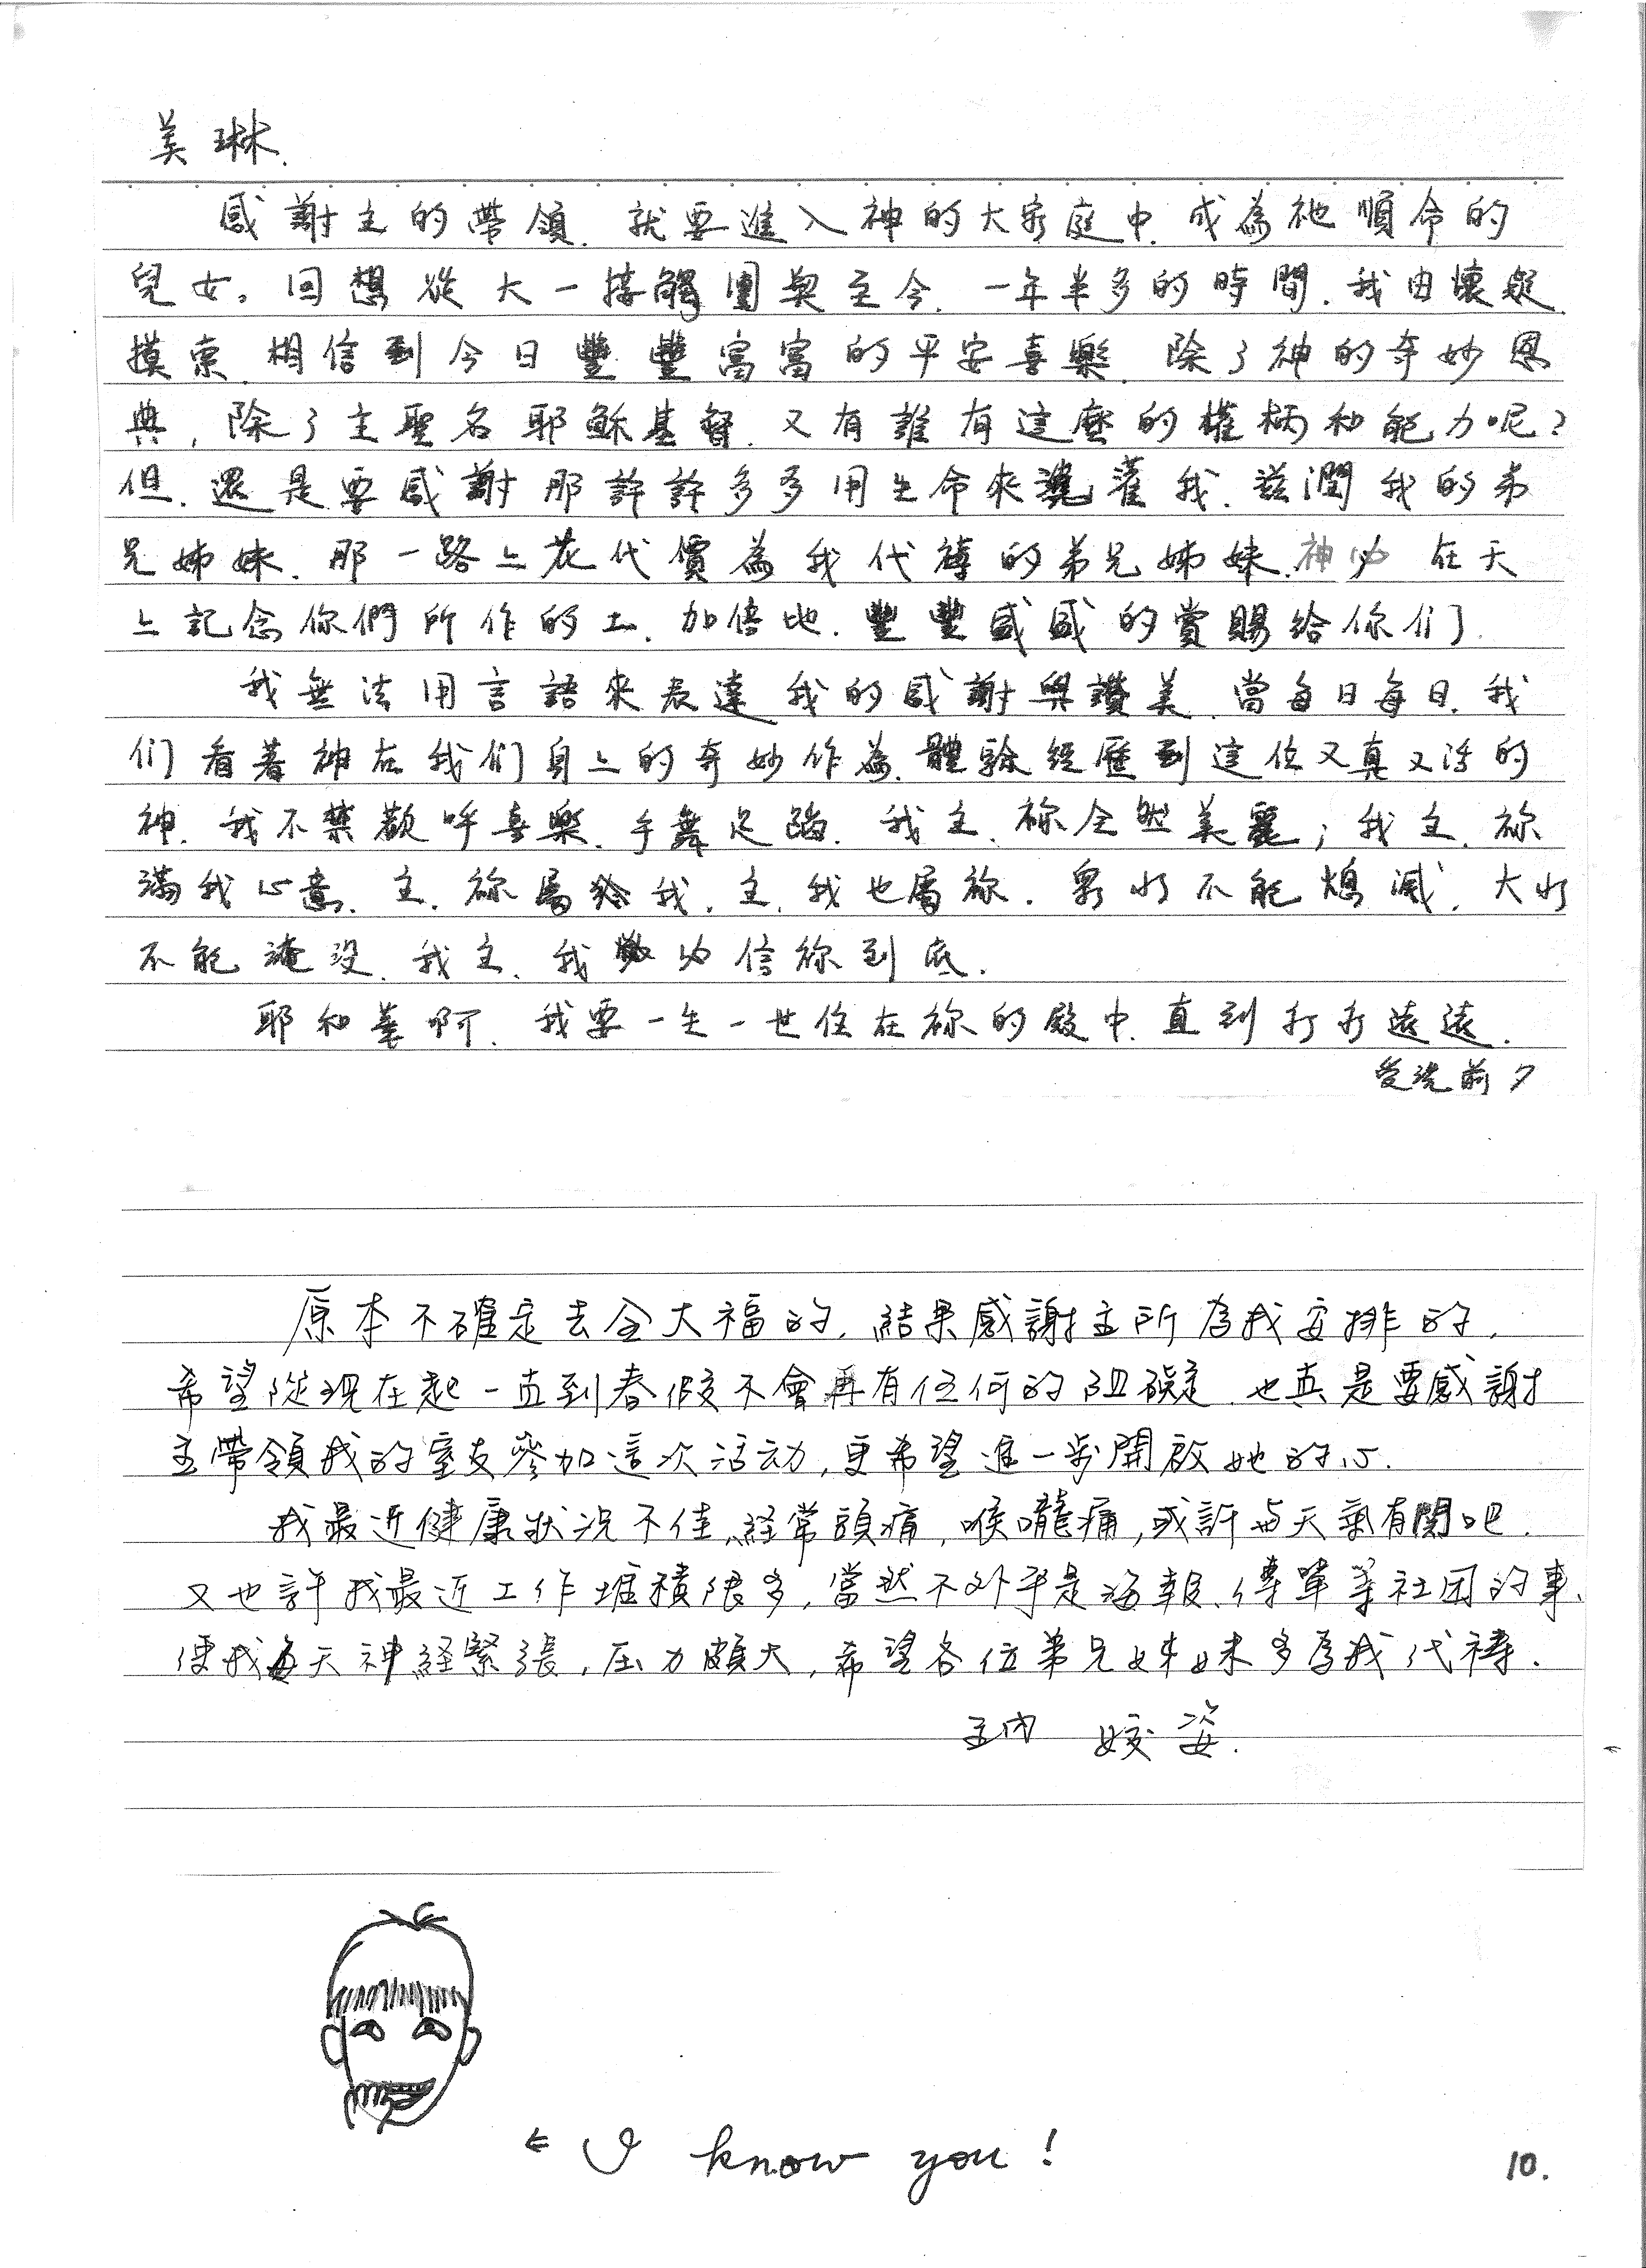 美琳.
感謝主的帶領.就要進入神的大家庭中.成為祂順命的
兒女。回想從大一接觸團契至今.一年半多的時間.我由懷疑.
摸索.相信到今日豐豐富富的平安喜樂.除了神的奇妙恩
典,除了主聖名耶穌基督.又有誰有這麼的權柄和能力呢?
但.還是要感謝那許許多多用生命來澆灌我.滋潤我的弟
兄姊妹.那一路上花代價為我代禱的弟兄姊妹.神必在天
上記念你們所作的工.加倍地.豐豐盛盛的賞賜給你们.
我無法用言語來表達我的感謝與讚美.當每日每日.我
们看著神在我们身上的奇妙作為.體驗經歷到這位又真又活的
神.我不禁歡呼喜樂.手舞足蹈.我主.祢全然美麗;我主.祢
滿我心意.主.祢屬於我.主.我也屬祢.眾水不能熄滅.大水
不能淹沒.我主.我必信祢到底.
耶和華啊.我要一生一世住在祢的殿中.直到永永遠遠.
受洗前夕
原本不確定去全大福的,結果感謝主所為我安排的,
希望從現在起一直到春假不會再有任何的阻礙.也真是要感謝
主帶領我的室友參加這次活动,更希望進一步開啟她的心.
我最近健康狀況不佳,経常頭痛,喉嚨痛,或許与天氣有関吧.
又也許我最近工作堆積很多,當然不外乎是海報、傳單等社团的事、
使我每天神経緊張,压力頗大,希望各位弟兄姊妹多為我代禱.
主內 姣姿.
← I know you!
10.